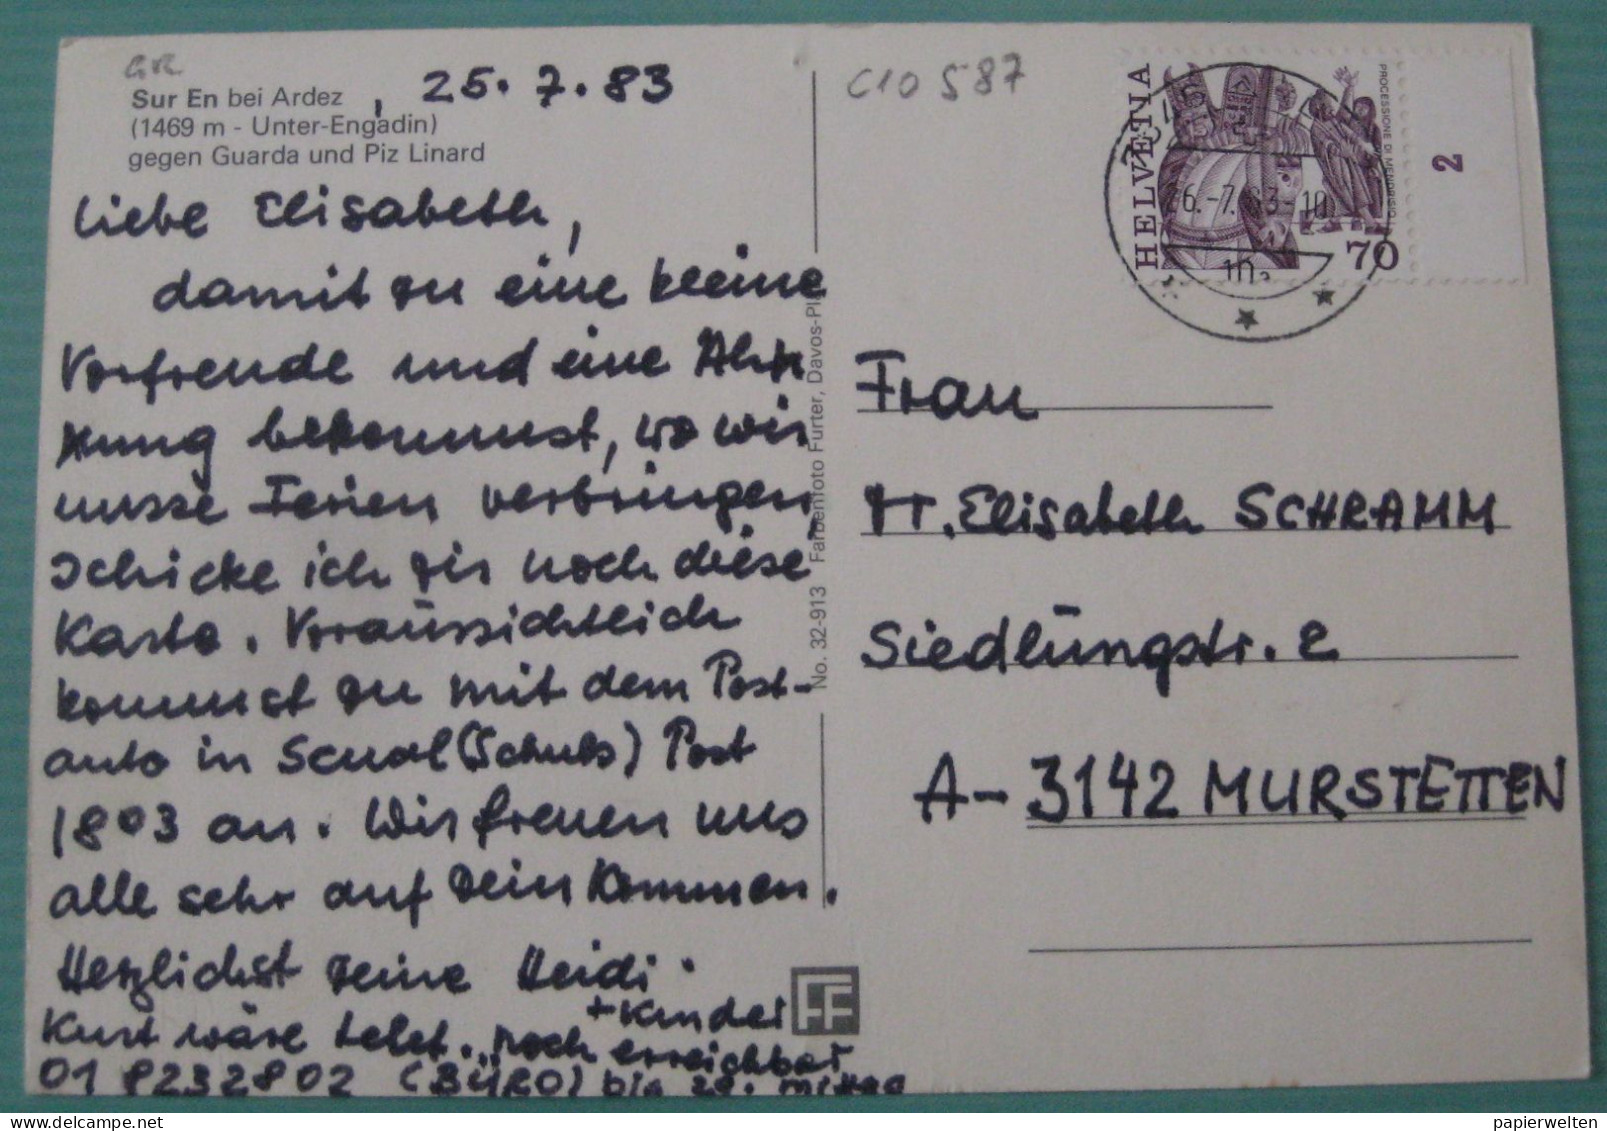 GR
Sur En bei Ardez , 25.7.83
(1469 m - Unter-Engadin)
gegen Guarda und Piz Linard
Liebe Elisabeth,
damit du eine kleine
Vorfreude und eine Ah
nung bekommst, wo wir
unsre Ferien verbringen,
schicke ich dir noch diese
Karte. Voraussichtlich
kommst du mit dem Post-
auto in Scuol (Schuls) Post
1803 an. Wir freuen uns
alle sehr auf dein Kommen.
Herzlichst deine Heidi.
+ Kinder
Kurt wäre telef. noch erreichbar
01 8232802 (BÜRO) bis 29. mittag
No. 32-913 Farbenfoto Furter, Davos-Pl
FF
C10 587
HELVETIA
PROCESSIONE DI MENDRISIO
70
2
Frau
Elisabeth SCHRAMM
Siedlungstr. 2
A- 3142 MURSTETTEN
papierwelten